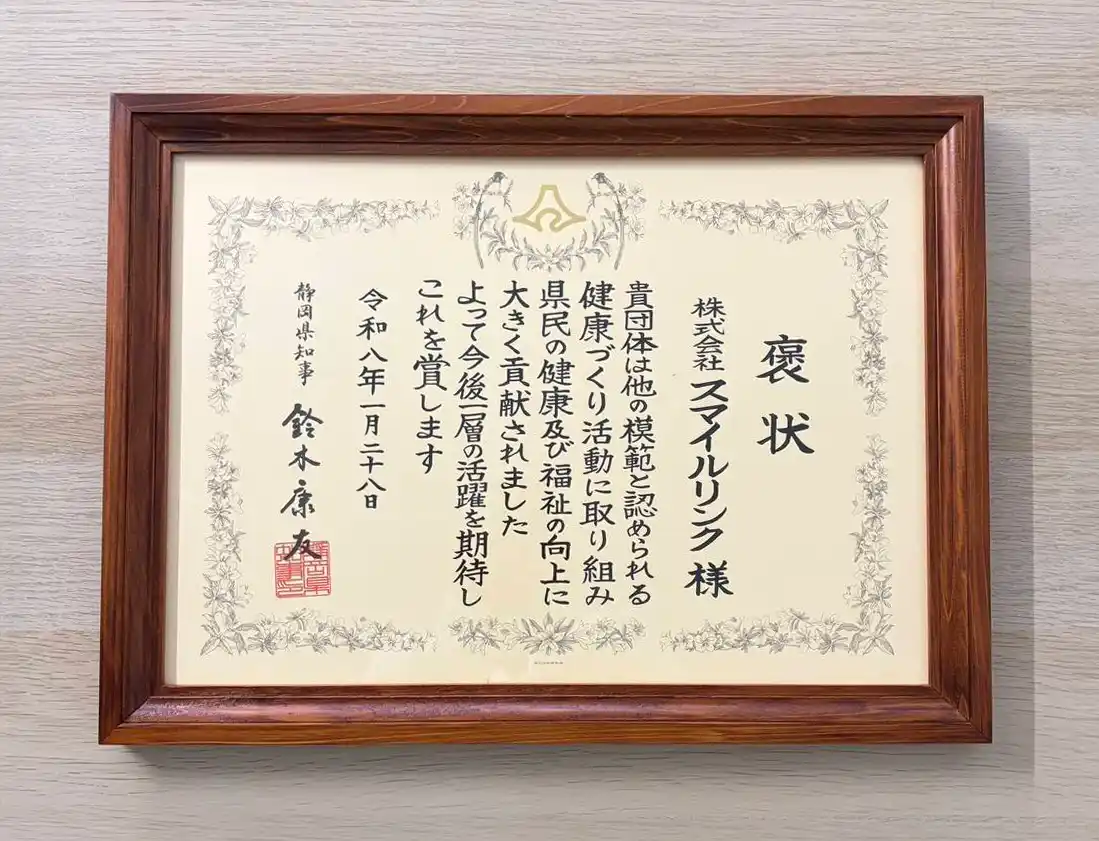 褒状
株式会社 スマイルリンク 様
貴団体は他の模範と認められる
健康づくり活動に取り組み
県民の健康及び福祉の向上に
大きく貢献されました
よって今後一層の活躍を期待し
これを賞します
令和八年一月二十八日
静岡県知事 鈴木康友